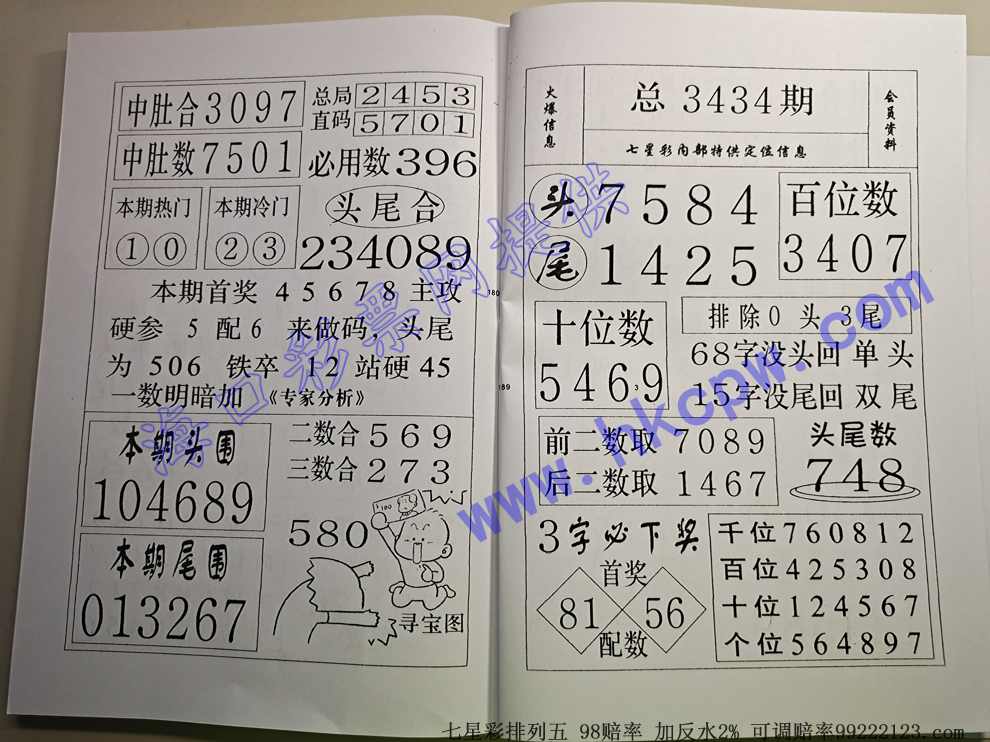 中肚合3097
中肚数7501
总局 2453
直码 5701
必用数396
本期热门
①⓪
本期冷门
②③
头尾合
234089
本期首奖 45678 主攻
硬参 5 配6 来做码，头尾
为 506 铁卒 12 站硬45
一数明暗加 《专家分析》
本期头围
104689
本期尾围
013267
二数合 569
三数合 273
580
100
寻宝图
180
189
火爆信息
总 3434期
七星彩内部特供定位信息
会员资料
头 7584
尾 1425
百位数
3407
十位数
5469
3
排除0 头 3尾
68字没头回 单 头
15字没尾回 双 尾
前二数取 7089
后二数取 1467
头尾数
748
3字必下奖
首奖
81 56
配数
千位760812
百位425308
十位124567
个位564897
海口彩票网提供
www.hkcpw.com
七星彩排列五 98赔率 加反水2% 可调赔率99222123.com